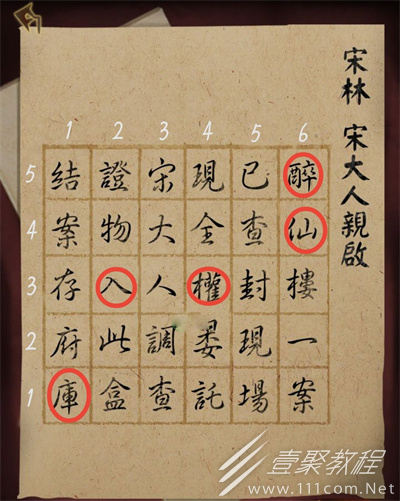 宋林 宋大人親啟
1 2 3 4 5 6
5 4 3 2 1
醉仙樓一案
已查封現場
現全權委託
宋大人調查
證物入此盒
結案存府庫
壹聚教程
www.111com.Net